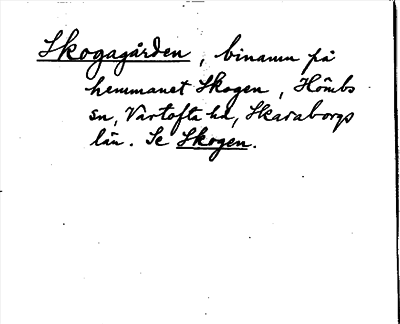 Skogagården, binamn på
hemmanet Skogen, Hömbs
sn, Vartofta hd, Skaraborgs
län. Se Skogen.